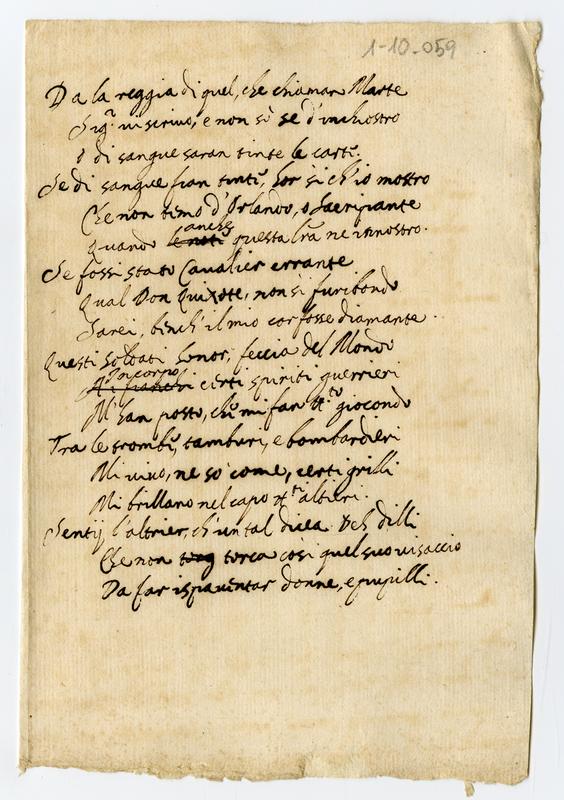 1-10-059
Da la reggia di quel, che chiaman Marte
Sigr. vi scrivo, e non sò se d'inchiostro
O di sangue saran tinte le carte.
Se di sangue fian tinte, hor si ch'io mostro
Che non temo d'Orlando, o Sacripante
anche
Quando le note questa lra ne innostro.
Se fossi stato Cavalier errante
Qual Don Quixote, non sì furibondo
Sarei, benche il mio cor fosse diamante.
Questi soldati Senor, feccia del Mondo
In corpo
Ai fianchi certi spiriti guerrieri
M'han posto, che mi fan tto giocondo
Tra le trombe, tamburi, e bombardieri
Mi vivo, ne so come, certi grilli
Mi brillano nel capo tti altieri.
Sentij l'altrier, ch'un tal dicea deh dilli
Che non torg torca così quel suo visaccio
Da far ispaventar donne, e pupilli.